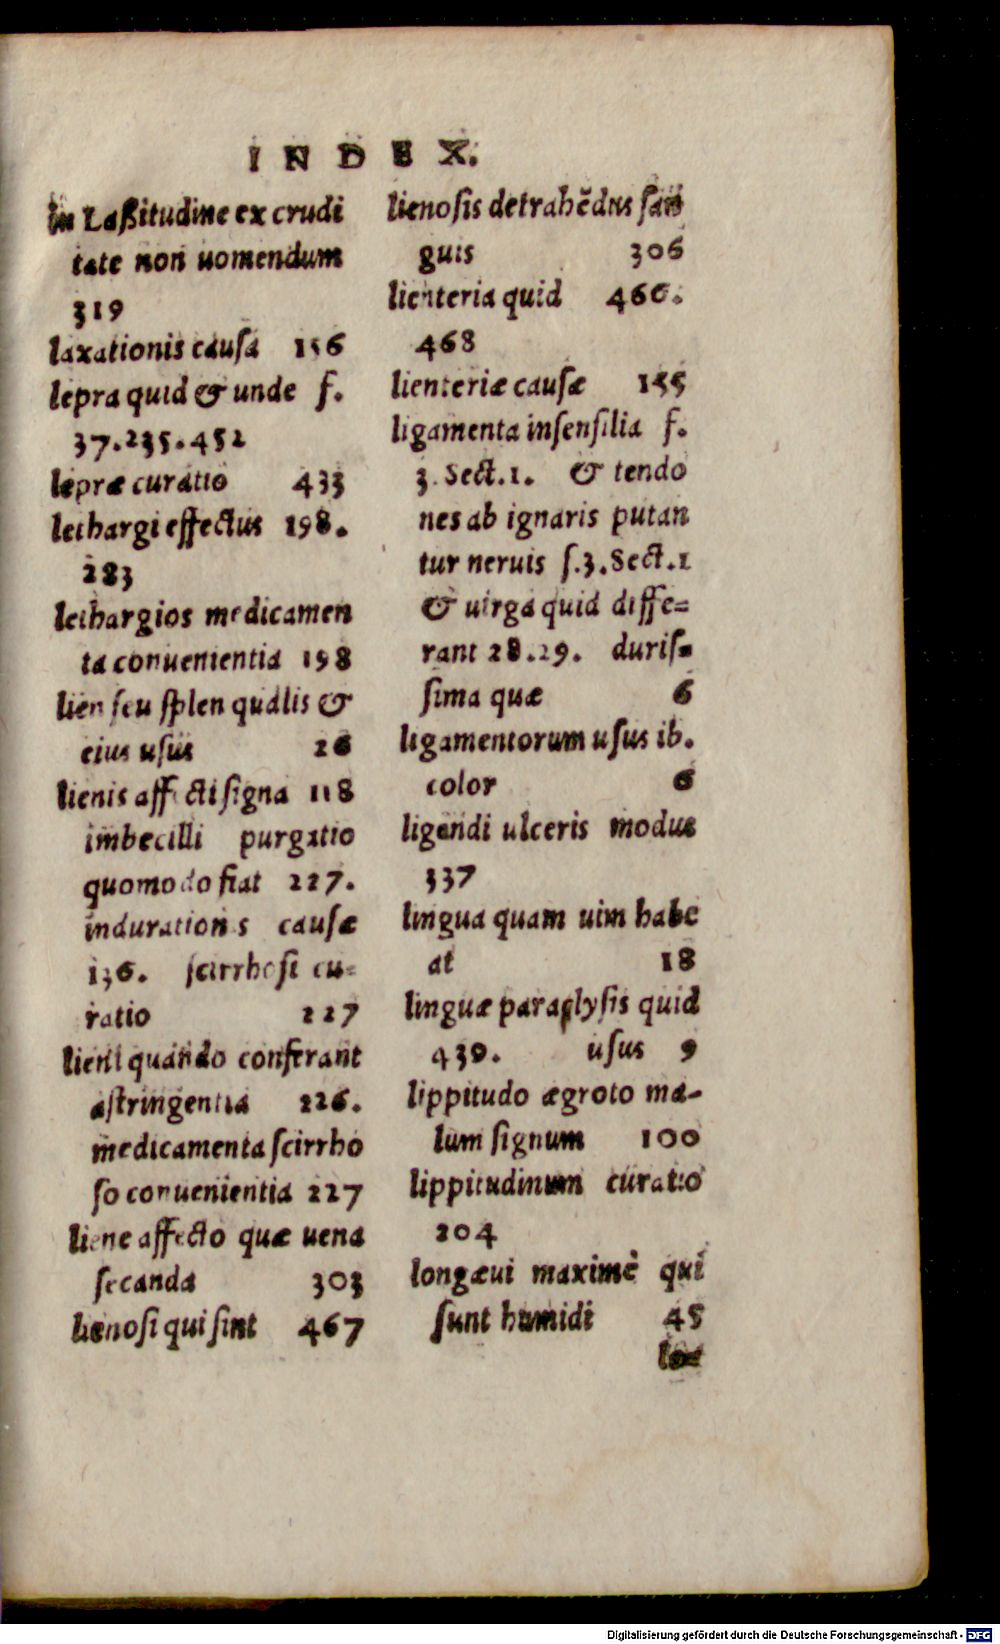 INDEX.
in Laßitudine ex crudi
tate non uomendum
319
laxationis causa 156
lepra quid & unde f.
37.235.452
lepræ curatio 433
lethargi effectus 198.
283
lethargios medicamen
ta conuenientia 198
lien seu splen qualis &
eius usus 26
lienis affecti signa 118
imbecilli purgatio
quomodo fiat 227.
indurationis causæ
136. scirrhosi cu-
ratio 227
lieni quando conferant
astringentia 226.
medicamenta scirrho
so conuenientia 227
liene affecto quæ uena
secanda 303
lienosi qui sint 467
lienosis detrahẽdus san
guis 306
lienteria quid 466.
468
lienteriæ causæ 155
ligamenta insensilia f.
3. Sect.1. & tendo
nes ab ignaris putan
tur neruis f.3.Sect.1
& uirga quid diffe=
rant 28.29. duris=
sima quæ 6
ligamentorum usus ib.
color 6
ligandi ulceris modus
337
lingua quam uim habe
at 18
linguæ paraplysis quid
439. usus 9
lippitudo ægroto ma-
lum signum 100
lippitudinum curatio
204
longæui maximè qui
sunt humidi 45
Digitalisierung gefördert durch die Deutsche Forschungsgemeinschaft - DFG